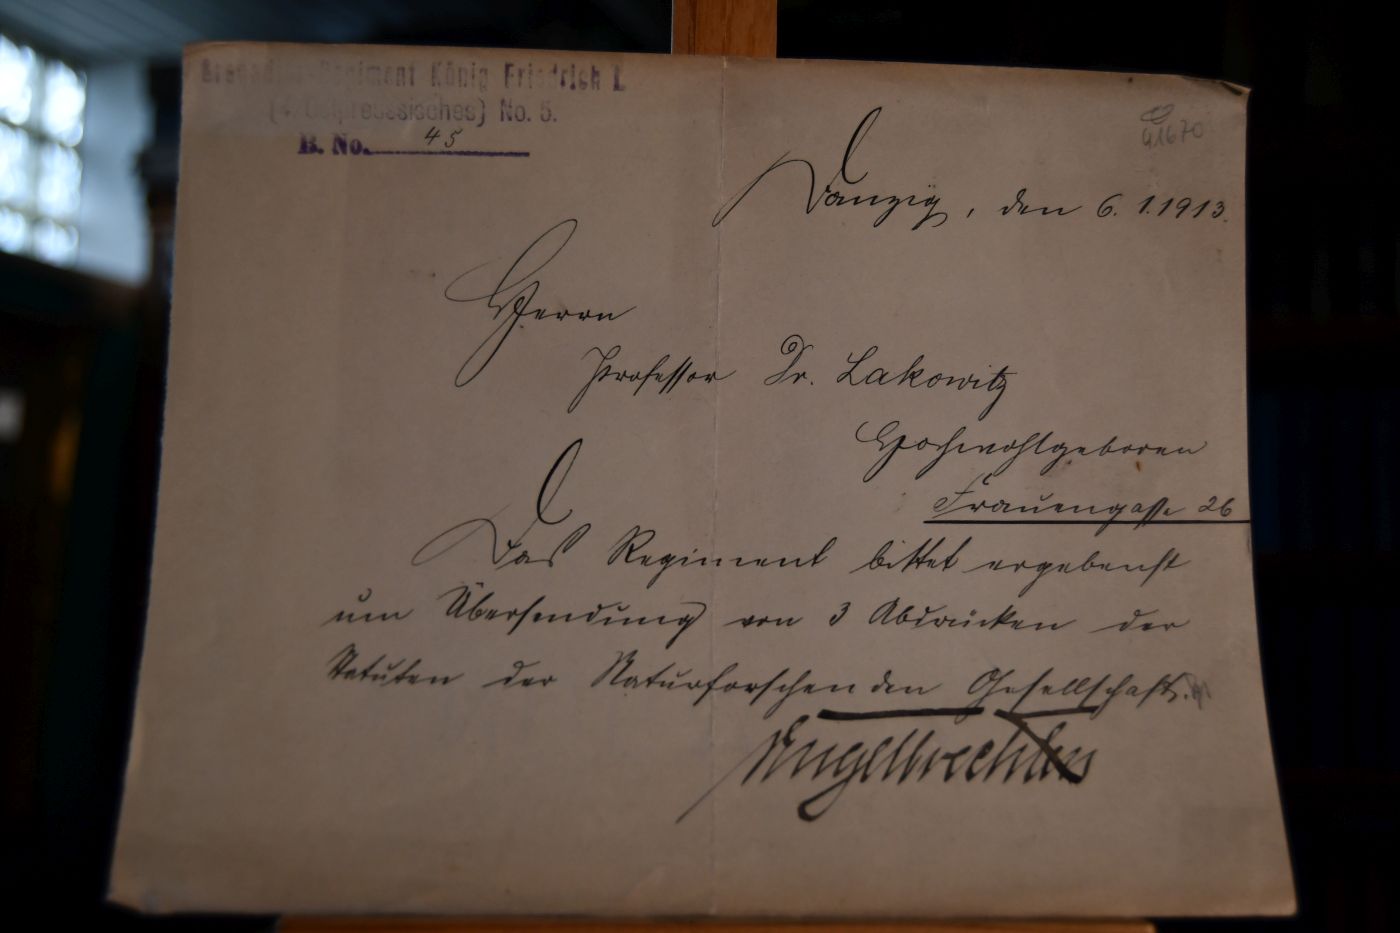 Grenadier-Regiment König Friedrich I.
(4. Ostpreussisches) No. 5.
B. No. 45
41670
Danzig, den 6. 1. 1913.
Herrn
Professor Dr. Lakowitz
Hochwohlgeboren
Frauengasse 26
Das Regiment bittet ergebenst
um Übersendung von 3 Abdrücken der
Statuten der Naturforschenden Gesellschaft.